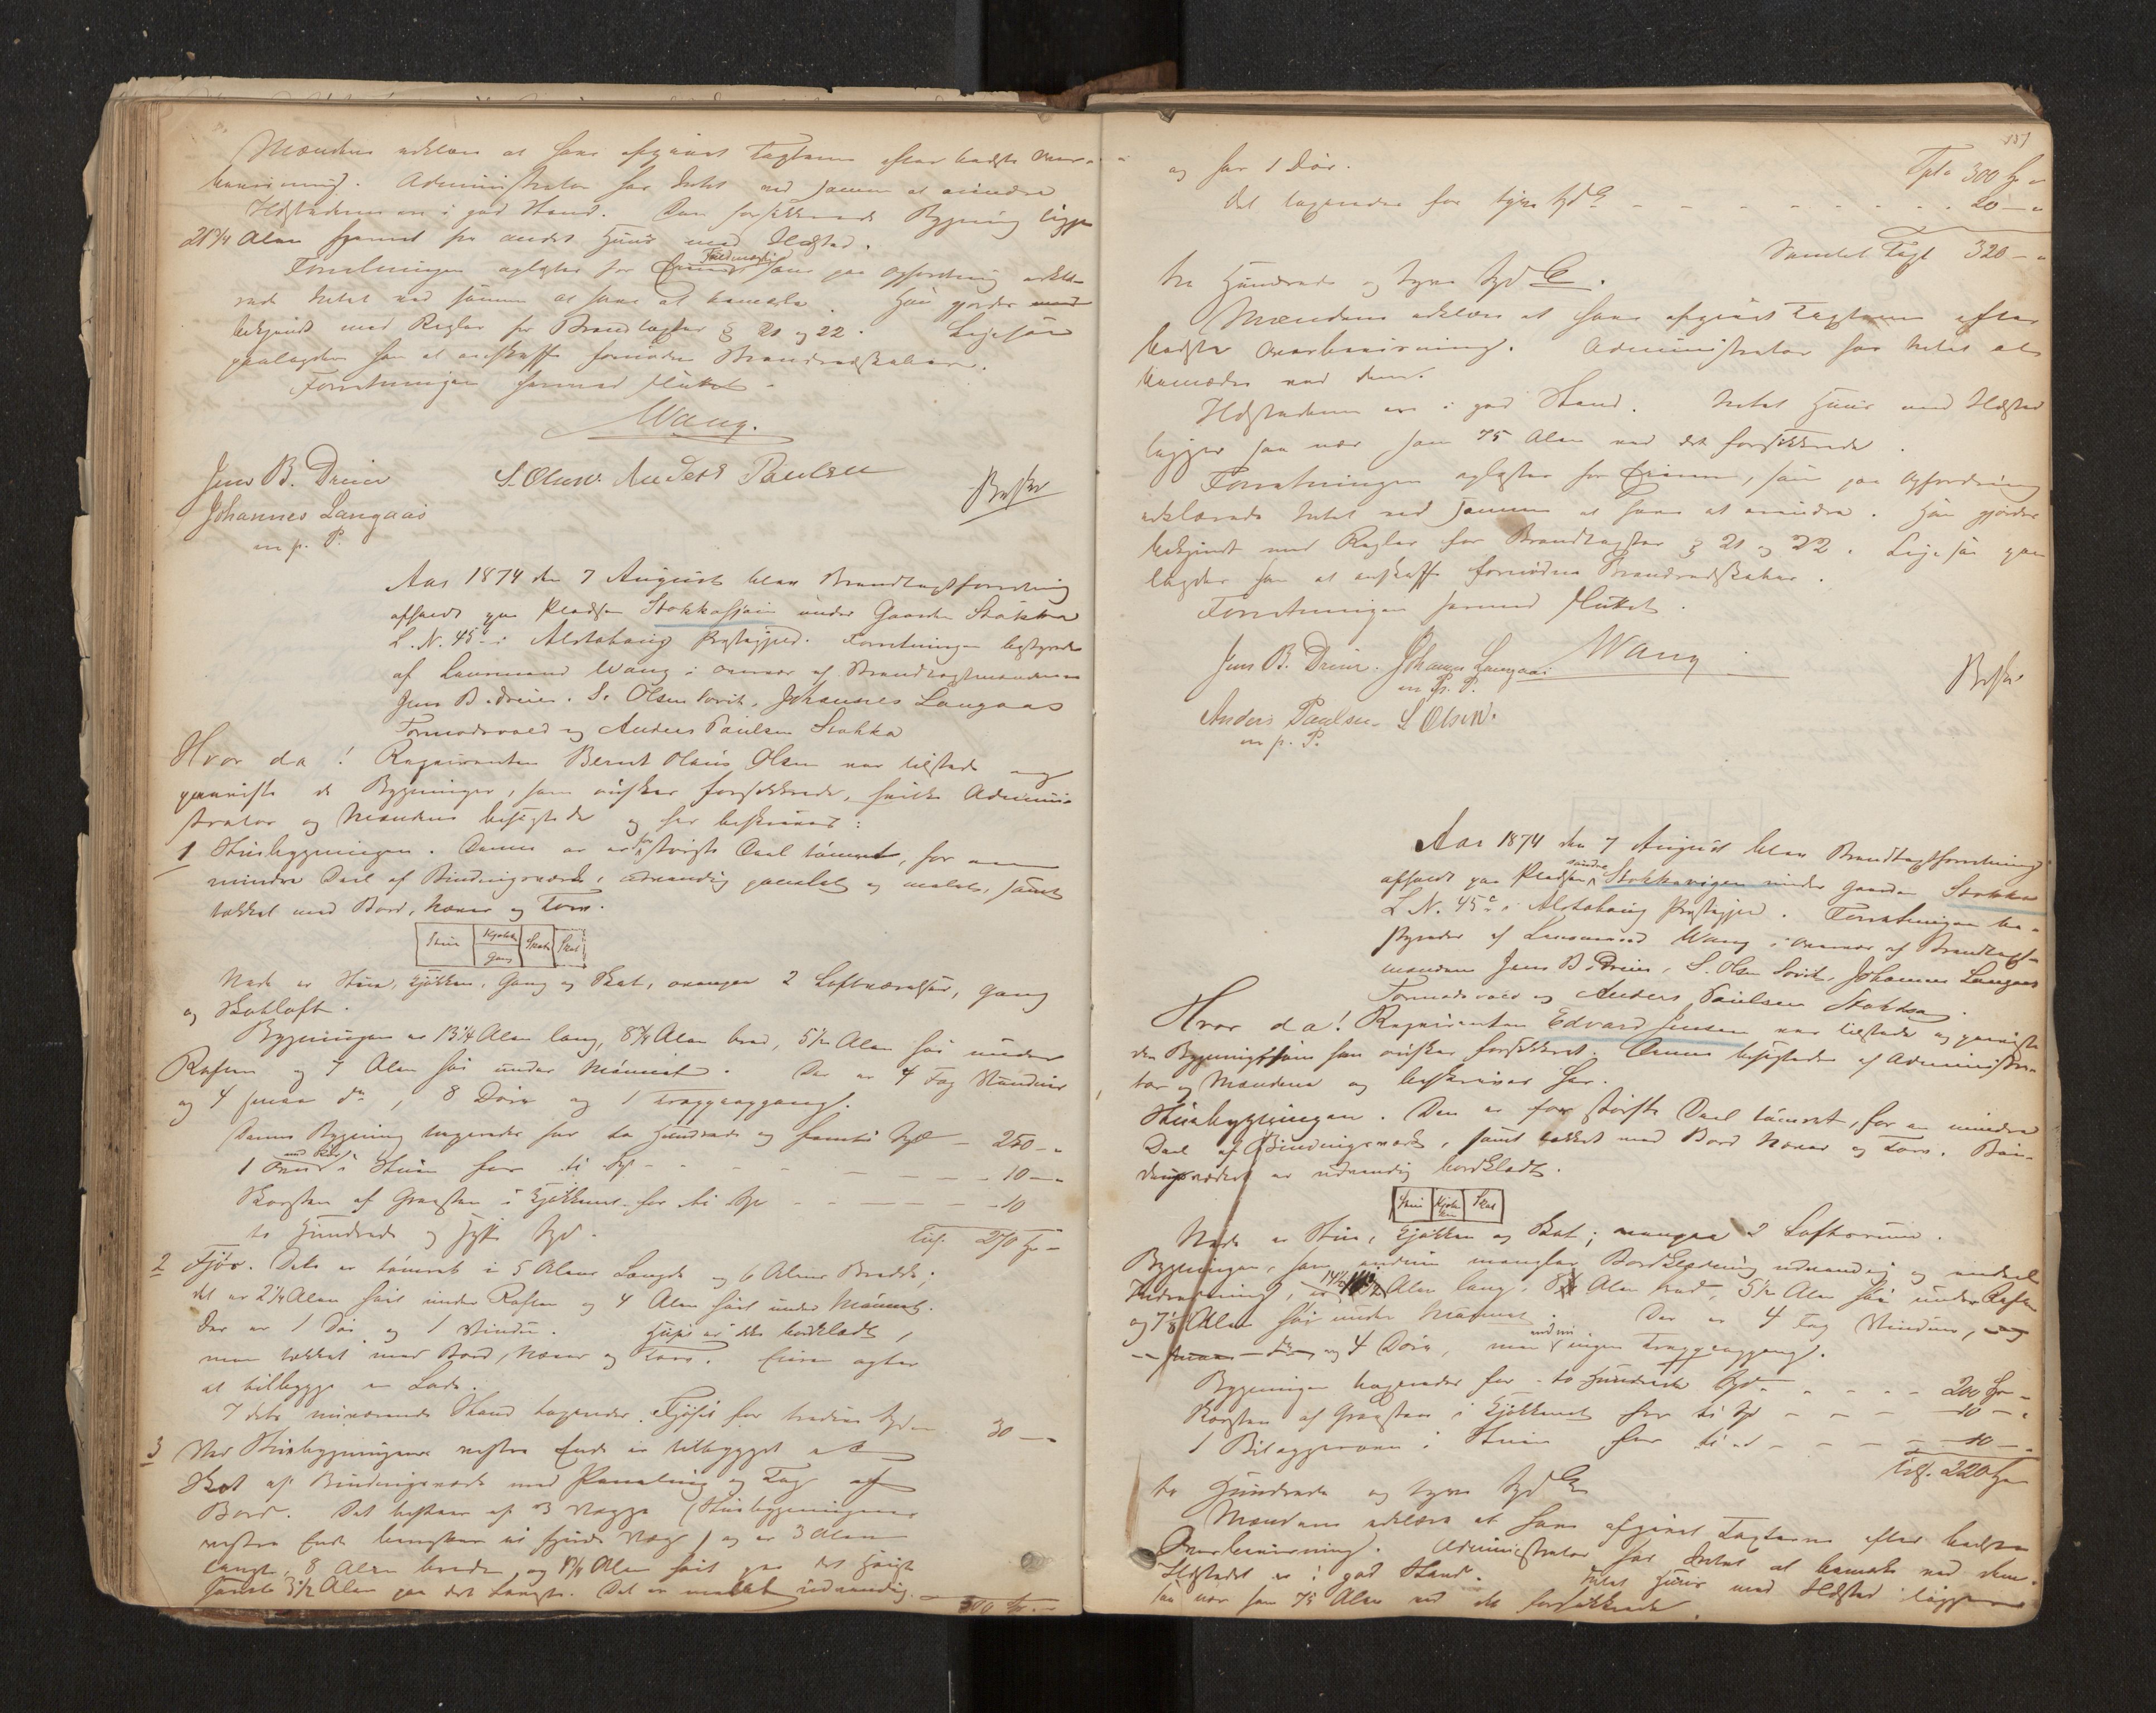 Mændene erklære at have afgivet Taxterne efter bedste Over-
beviisning. Administrator har Intet ved samme at erindre
Ildstederne er i god Stand. Den forsikkrede Bygning ligger
21 3/4 Alen fjernet fra andet Huus med Ildsted.
Fuldmægtig
Forretningen oplæstes for Eieren som paa Opfordring erklæ-
rede Intet ved samme at have at bemærke. Han gjordes med
bekjendt med Regler for Brandtaxter § 21 og 22. Ligesaa
paalagdes ham at anskaffe fornødne Brandredskaber.
Forretningen hermed sluttet.
Wang.
Jens B. Dreier S. Olsen. Anders Paulsen
Johannes Langaas
m. p. P.
Beskr
Aar 1874 den 7 August blev Brandtaxtforretning
afholdt paa Pladsen Stokkasjøen under Gaarden Stokka
L. N. 45 i Alstahaug Præstegjeld. Forretningen bestyredes
af Lensmand Wang i Overvær af Brandtaxtmændene
Jens B. Dreier, S. Olsen Sovik, Johannes Langaas
Formodsvold og Anders Paulsen Stokka
Hvor da! Reqvirenten Bernt Olaus Olsen var tilstede og
paaviste de Bygninger, som ønskes forsikkrede, hvilke Admini-
strator og Mændene besigtede og her beskrives:
1 Stuebygningen. Denne er for største Deel tømret, for en
mindre Deel af Bindingsværk, udvendig panelet og malet, samt
tækket med Bord, Næver og Torv.
Stue Kjøkken Gang Skot Skot
Nede er Stue, Kjøkken, Gang og Skot, ovenpaa 2 Loftværelser, Gang
og Skotloft.
Bygningen er 13 1/4 Alen lang, 8 3/4 Alen bred, 5 1/2 Alen høi under
Raften og 7 Alen høi under Mønnet. Der er 4 Fag Vinduer
og 4 smaa do, 8 Døre og 1 Trappeopgang.
Denne Bygning taxeredes for to Hundrede og femti Spd - 250 -
med Rør
1 Ovn i Stuen for ti Spd - 10 -
Skorsten af Graasten i Kjøkkenet for ti Spd - 10
to Hundrede og Sytti Spd. Tils. 270 Spd -
2 Fjøs. Dette er tømret i 5 Alens Længde og 6 Alens Bredde;
det er 2 1/4 Alen høit under Raften og 4 Alen høit under Mønnet.
Der er 1 Dør og 1 Vindue. Huset er ikke bordklædt,
men tækket med Bord, Næver og Torv. Eieren agter
at tilbygge en Lade.
I dets nuværende Stand taxeredes Fjøset for tredive Spd 30 -
3 Ved Stuebygningens vestre Ende er tilbygget et
Skot af Bindingsværk med Paneling og Tag af
Bord. Det bestaar af 3 Vægge (Stuebygningens
vestre Ende benyttes til fjerde Væg) og er 3 Alen
langt, 8 Alen bredt, og Alen høit paa det Høieste
samt 3 1/2 Alen paa det Laveste. Det er malet udvendig.
300 Spd -
151
Tpt. 300 Spd -
og har 1 Dør.
Det taxeredes for tyve Spd - 20 -
Samlet Taxt 320 -
tre Hundrede og tyve Spd.
Mændene erklære at have afgivet Taxterne efter
bedste Overbeviisning. Administrator har Intet at
bemærke ved dem.
Ildstederne er i god Stand. Intet Huus med Ildsted
ligger saa nær som 75 Alen ved det forsikkrede.
Forretningen oplæstes for Eieren, som paa Opfordring
erklærede Intet ved samme at have at erindre. Han gjordes
bekjendt med Regler for Brandtaxter § 21 og 22. Ligesaa paa-
lagdes ham at anskaffe fornødne Brandredskaber.
Forretningen hermed sluttet.
Wang
Jens B. Dreier. Johannes Langaas
m. p. P.
Anders Paulsen S. Olsen.
m. p. P.
Beskr
Aar 1874 den 7 August blev Brandtaxtforretning
søndre
afholdt paa Pladsen Stokkavigen under Gaarden Stokka
L. N. 45 c i Alstahaug Præstegjeld. Forretningen be-
styredes af Lensmand Wang i Overvær af Brandtaxt-
mændene Jens B. Dreier, S. Olsen Sovik, Johannes Langaas
Formodsvold og Anders Paulsen Stokka.
Hvor da! Reqvirenten Edvard Jensen var tilstede og paaviste
den Bygning som han ønsker forsikkret. Denne besigtedes af Administra-
tor og Mændene og beskrives her.
Stuebygningen. Den er for største Deel tømret, for en mindre
Deel af Bindingsværk, samt tækket med Bord Næver og Torv. Bin-
dingsværket er udvendig bordklædt.
Stue Kjøkken Skot
Nede er Stue, Kjøkken og Skot; ovenpaa 2 Loftsrum.
Bygningen, som endnu mangler Bordklædning udvendig og endeel
Indredning, er 14 1/2 Alen lang, 8 Alen bred, 5 1/2 Alen høi under Raften
og 7 1/8 Alen høi under Mønnet. Der er 4 Fag Vinduer, og
smaa do og 4 Døre, men endnu ingen Trappeopgang.
Bygningen taxeredes for to Hundrede Spd - 200 Spd -
Skorsten af Graasten i Kjøkkenet for ti Spd - 10 -
1 Bilæggerovn i Stuen for ti do - 10 -
Tils. 220 Spd
to Hundrede og tyve Spd
Mændene erklære at have afgivet Taxterne efter bedste
Overbeviisning. Administrator har Intet at bemærke ved dem.
Ildstedet er i god Stand. Intet Huus med Ildsted ligger
saa nær som 75 Alen ved det forsikkrede.